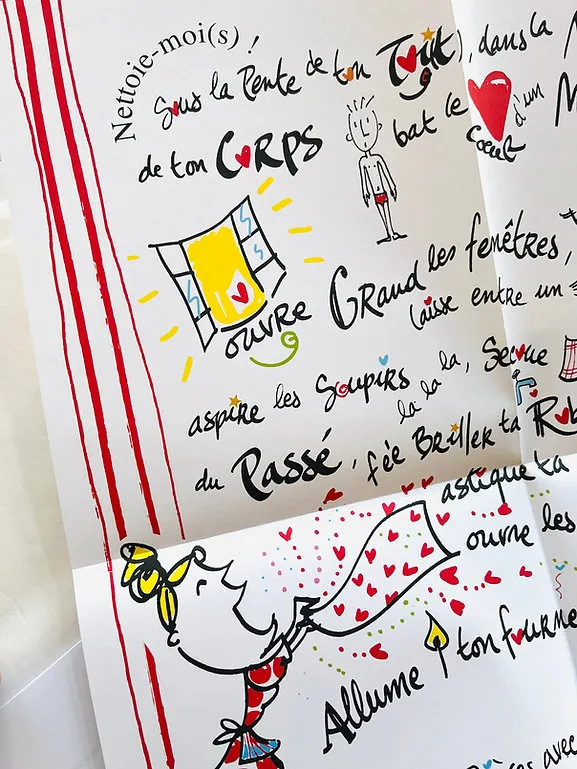 Nettoie-moi(s) !
Sous la Pente de ton Toit, dans la
de ton CoRPS bat le Cœur d'un
ouvre GRand les fenêtres,
laisse entre un
aspiRe les Soupirs la la la la, Secoue
du Passé, fée BRilleR ta Rob
astique ta
ouvre les
Allume ton fourne
avec